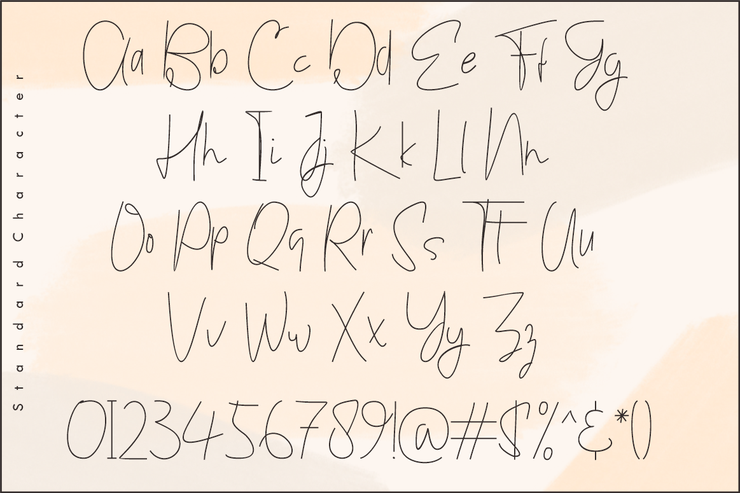 Standard Character
Aa Bb Cc Dd Ee Ff Gg
Hh Ii Jj Kk Ll Nn
Oo Pp Qq Rr Ss Tt Uu
Vv Ww Xx Yy Zz
0123456789!@#$%^&*()